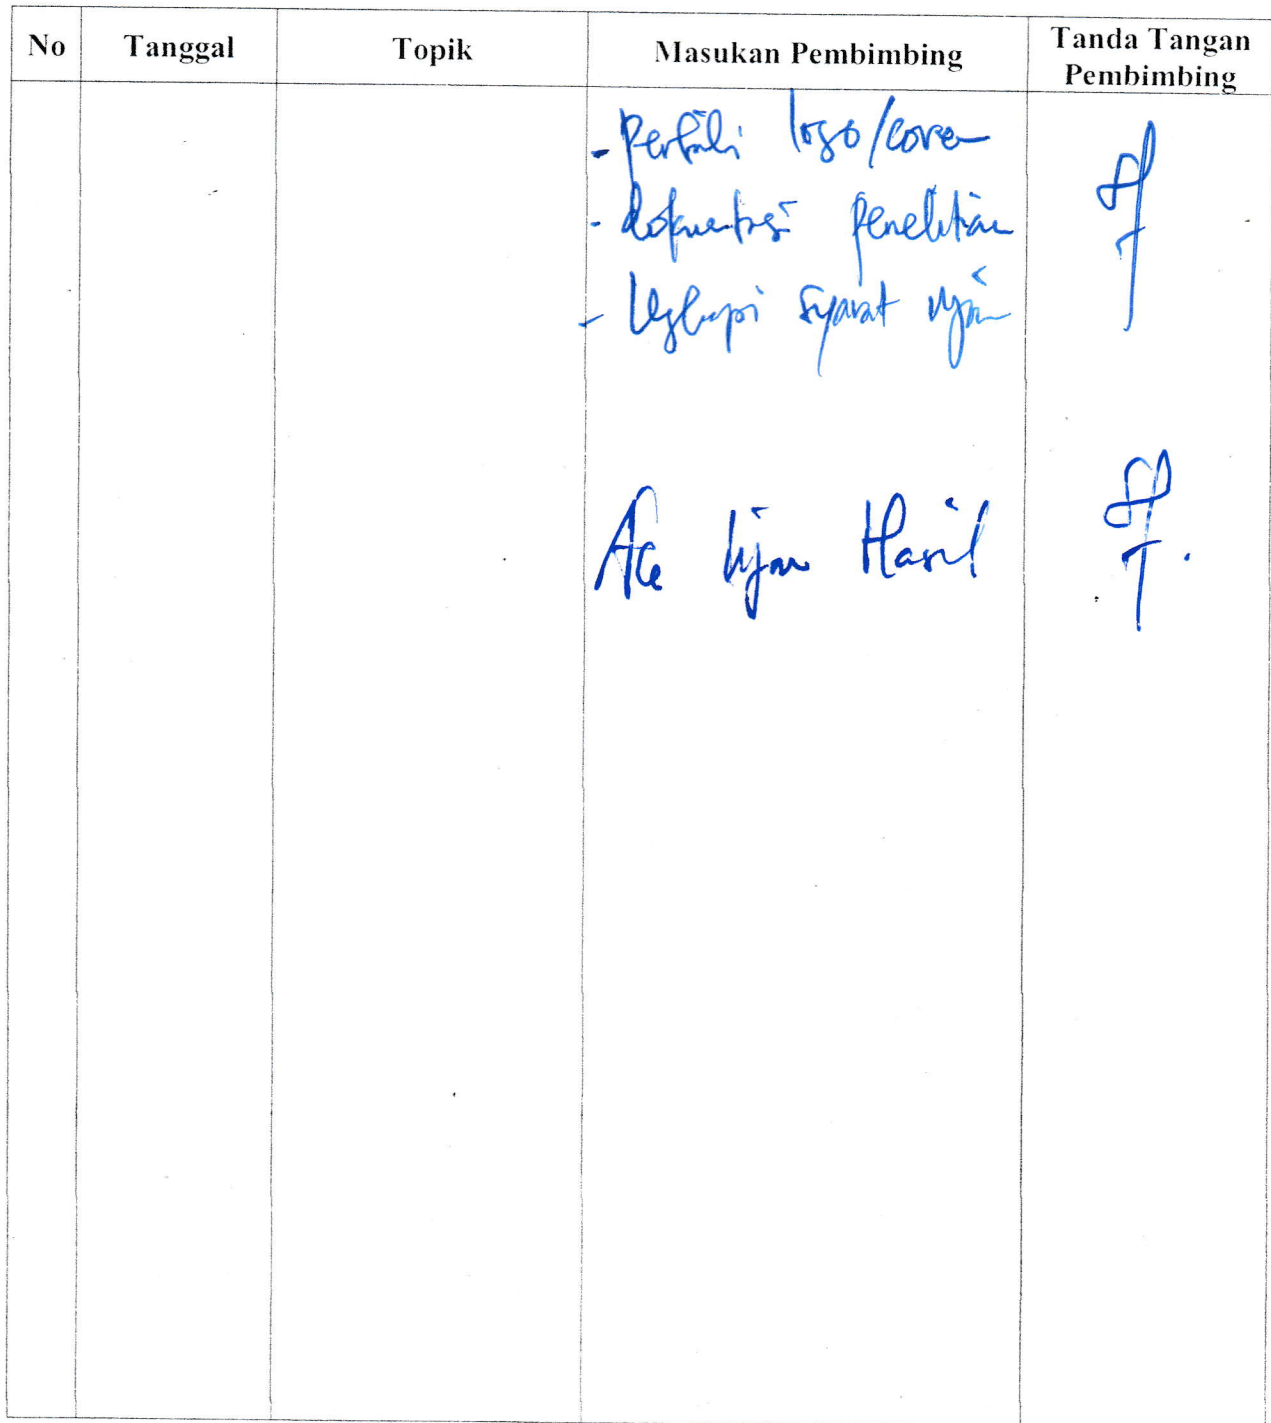 No Tanggal Topik Masukan Pembimbing Tanda Tangan Pembimbing
- Perbaiki logo/cover
- dokumentasi penelitian
- Lengkapi syarat ujian
Acc Ujian Hasil